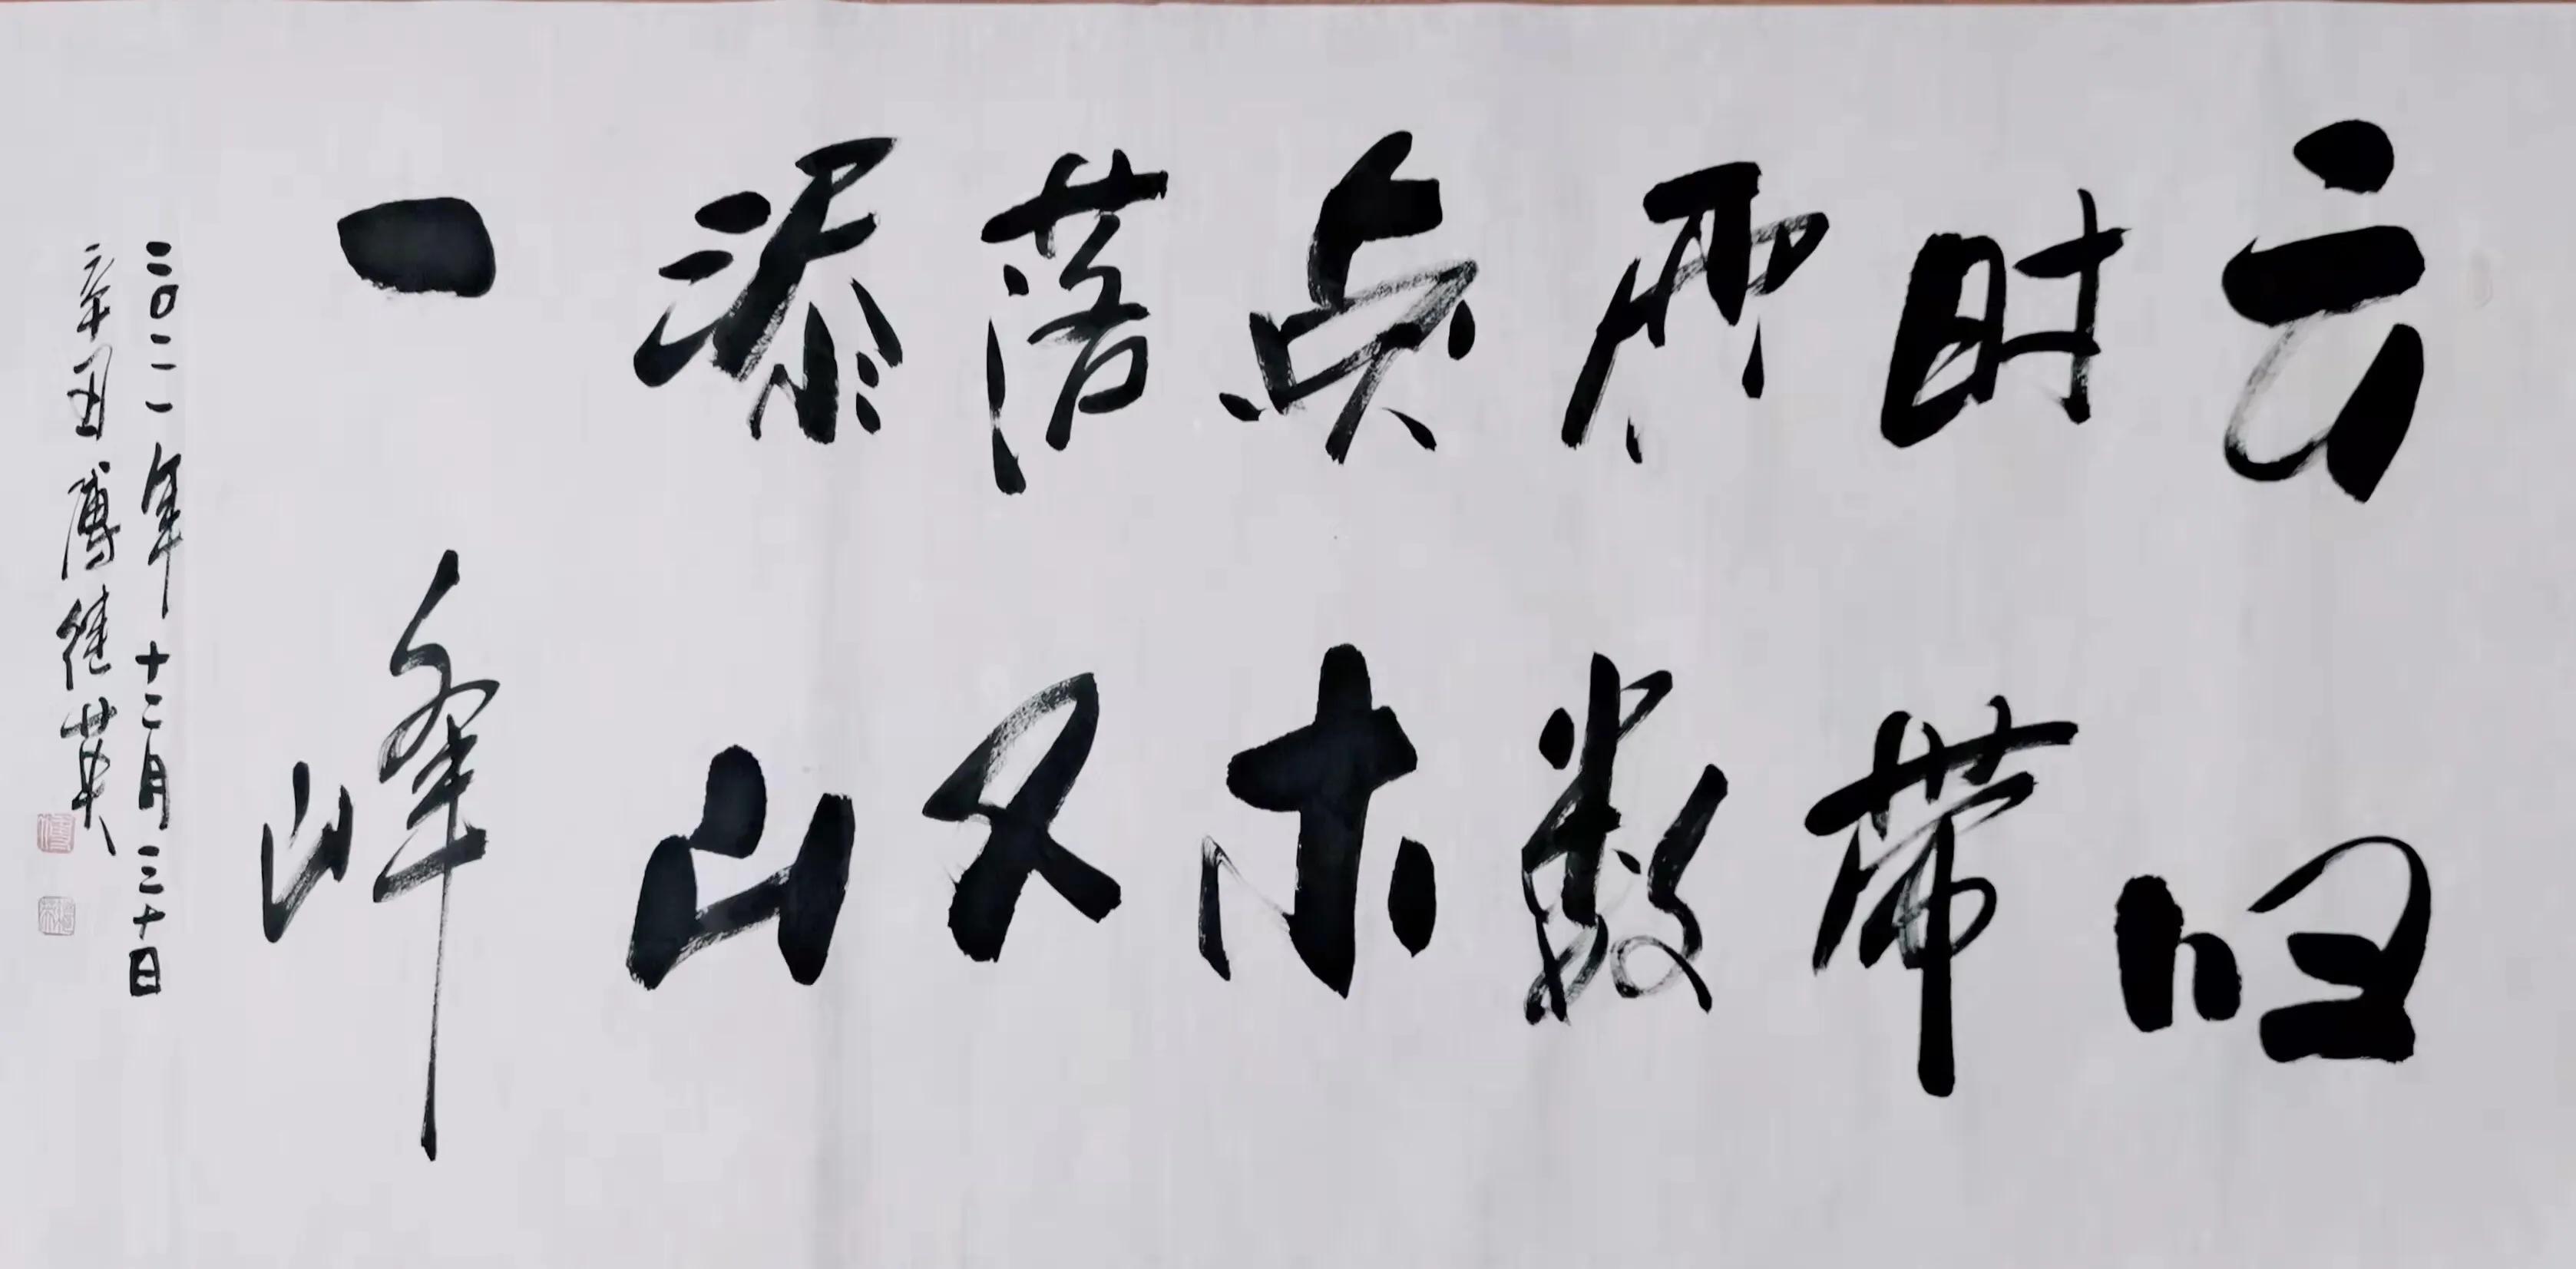 云归
时带
雨数
点木
落又
添山
一峰
二〇二一年十二月三十日
辛丑傅健英